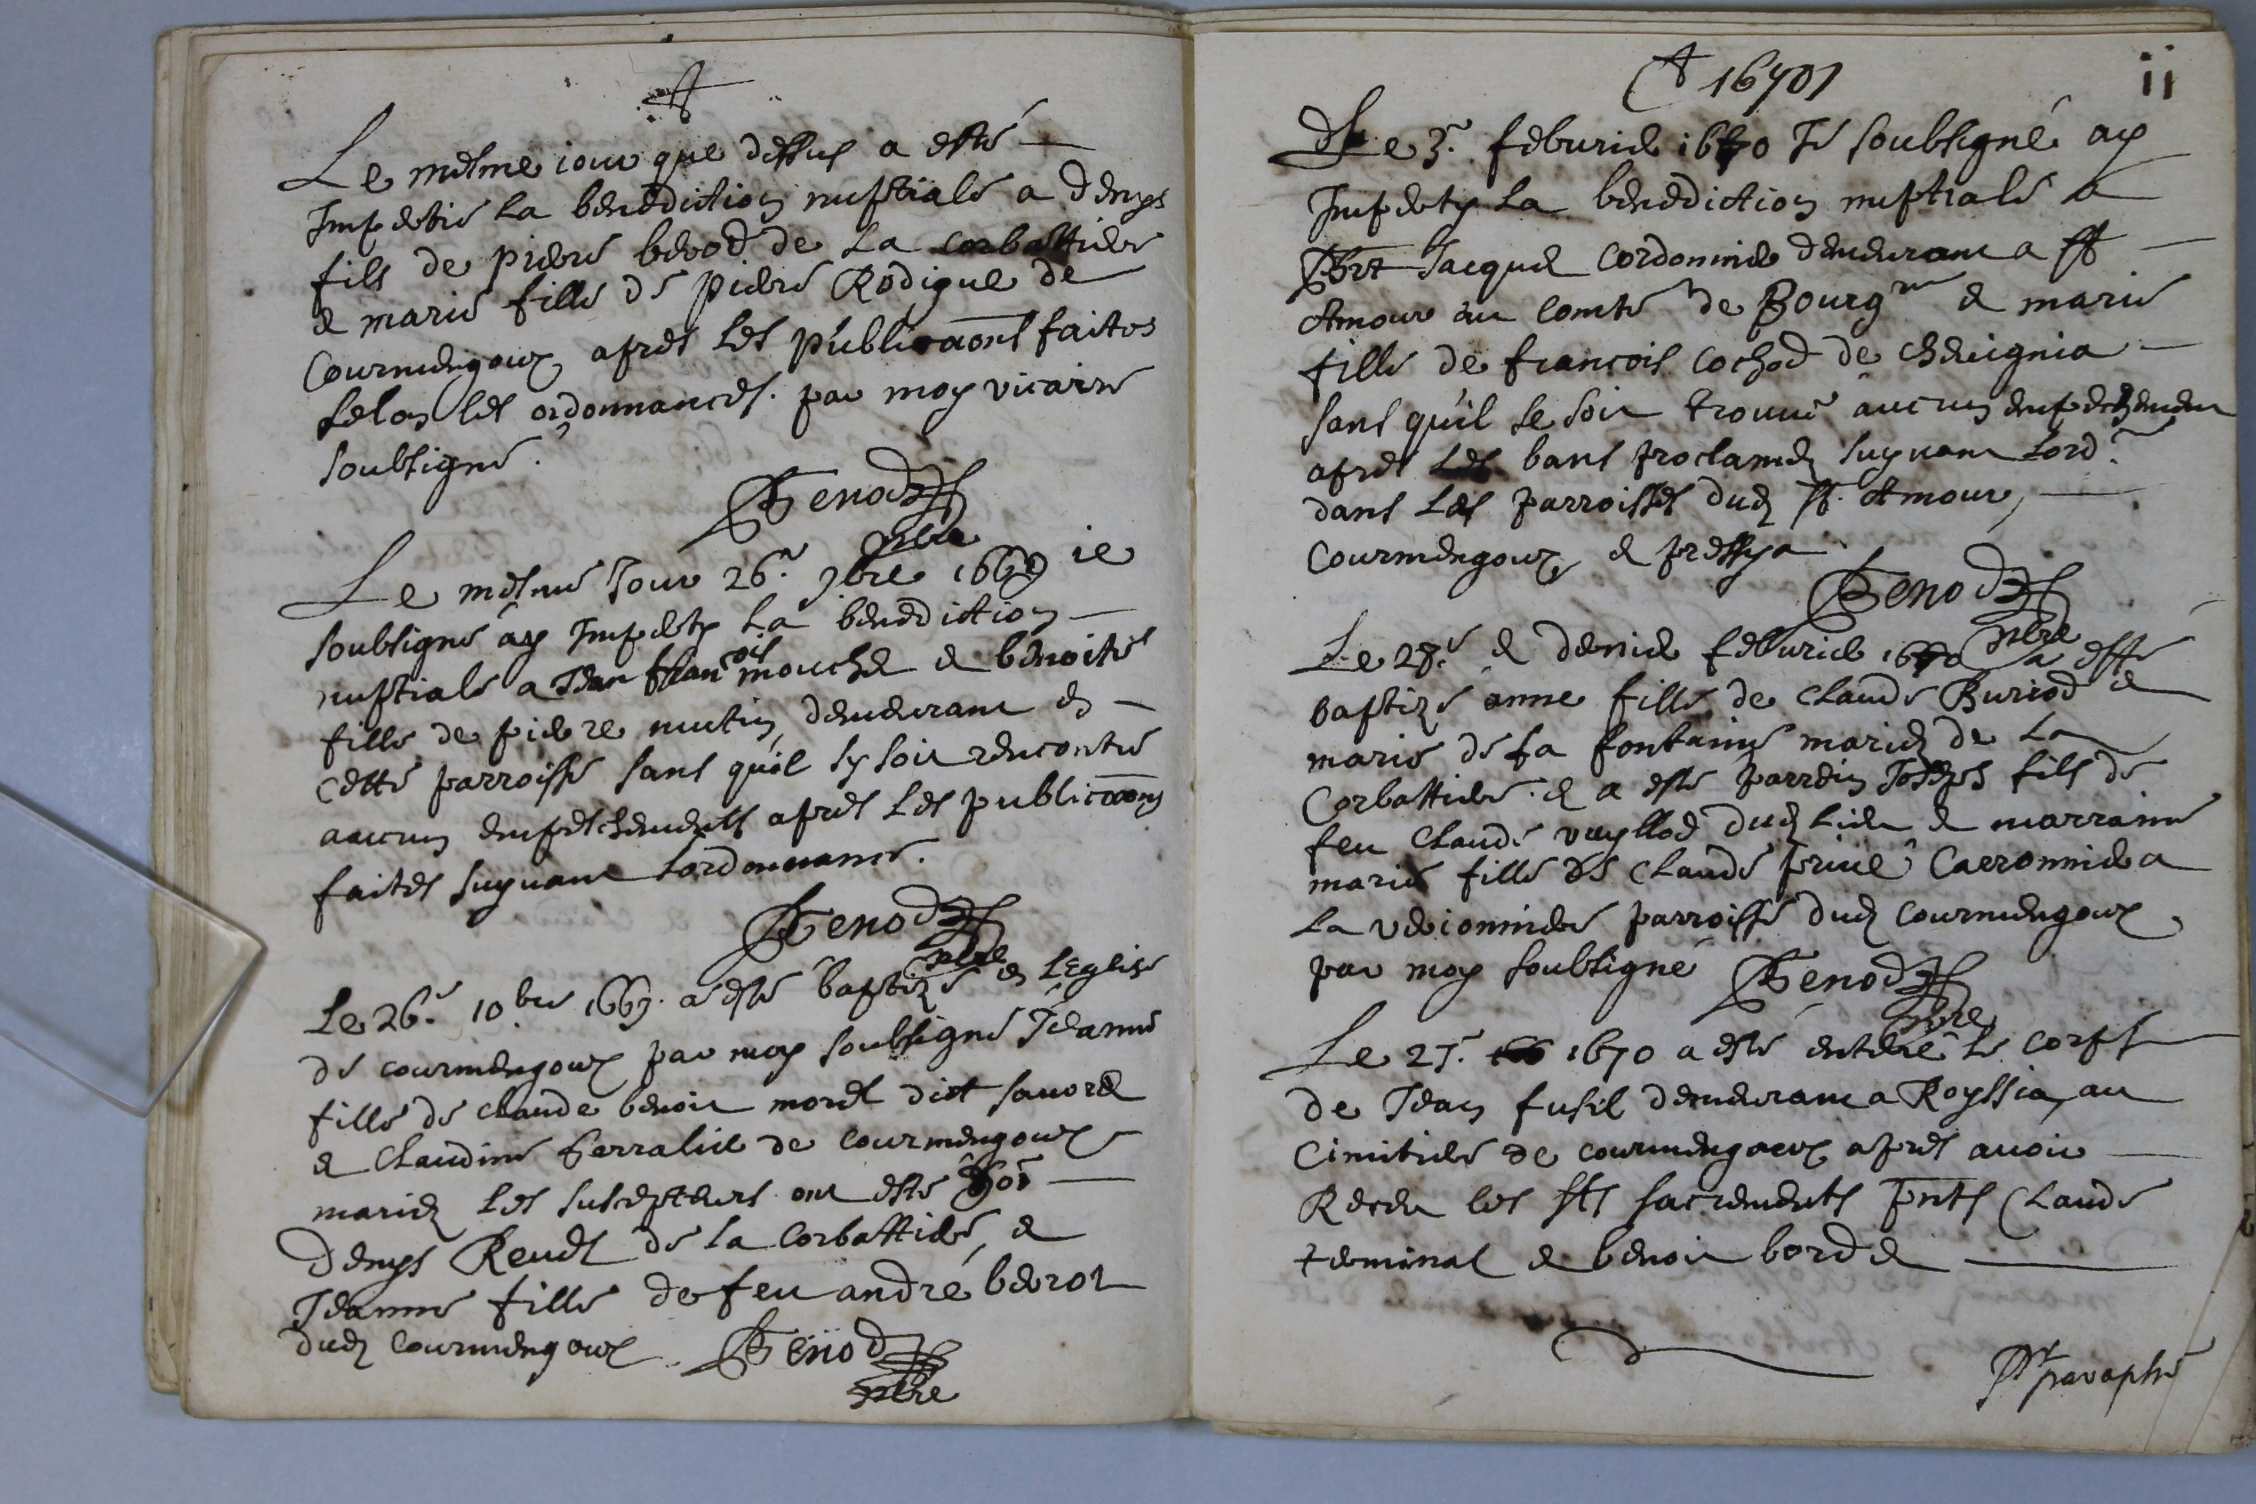 Le mesme iour que dessus a esté
Impertie la benediction nuptiale a denys
fils de pierre berod de la corbattiere
& marie fille de pierre Rodigue de
Courmengoux apres les publicaons faites
selon les ordonnances. par moy vicaire
soubsigné.
Genod
pbre
Le mesme Jour 26e 9bre 1669 ie
soubsigné ay Imperty la benediction
nuptiale a Jean francois mouchet & benoite
fille de pierre mutin demeurant en
cette parroisse sans quil sy soit rencontré
aucun empeschements apres les publicaons
faites suyvant lordonnance.
Genod
pbre
Le 26e 10bre 1669. a esté baptizé en leglise
de courmengoux par moy soubsigné Jeanne
fille de claude benoit morel dict savoret
& Claudine de courmengoux
mariez les suscepteurs ont esté
denys Reudet de la Corbattiere, &
Jeanne fille de feu andré berot
dud courmengoux. Genod
pbre
1670 ii
Le 3e feburier 1670 Je soubsigné ay
Imperty la benediction nuptiale a
Jacquet Cordonnier demeurant a St
Amour au Comté de Bourgne & marie
fille de francois Cochod de Chevignia
sans quil se soit trouvé aucun empechement
apres les bans proclamez suyvant lord.
dans les parroisses dud St. Amour,
Courmengoux, & pressya
Genod
pbre
Le 28e & dernier feburier 1670 a esté
baptizé anne fille de Claude Buriod &
marie de la fontaine mariez de la
Corbattiere. & a esté parrein Joseph fils de
feu Claude vuyllod dud lieu & marraine
marie fille de Claude privé Carronnier a
la verjonniere parroisse dud Courmengoux
par moy soubsigné Genod
pbre
Le 27e 1670 a esté enterré le corps
de Jean fusil demeurant a Royssia, au
Cimitiere de courmengoux apres avoir
Receu les sts sacrements pnts Claude
terminal & benoit bordet
paraphé